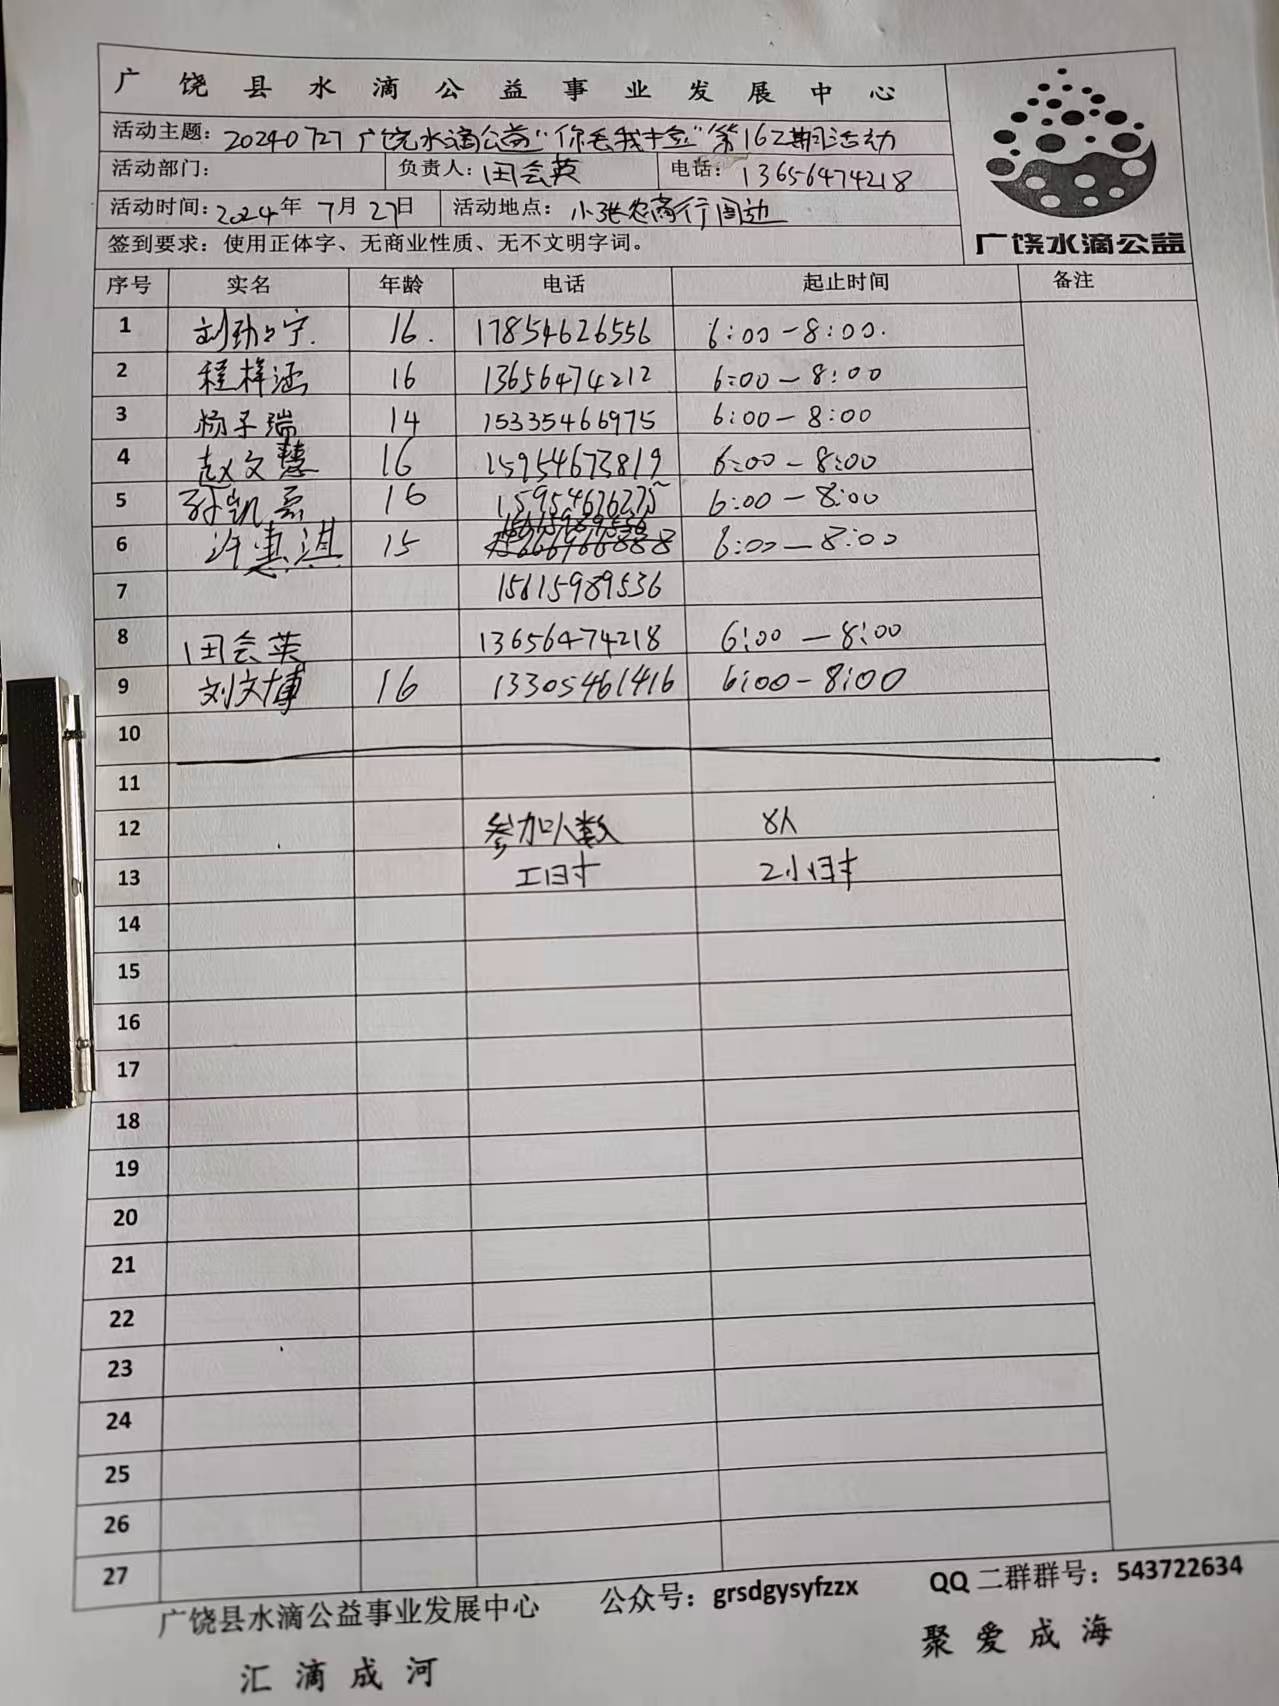 广饶县水滴公益事业发展中心
活动主题：20240727广饶水滴公益"你丢我牛益"第162期活动
活动部门： 负责人：田会英 电话：13656474218
活动时间：2024年7月27日 活动地点：小张农商行周边
签到要求：使用正体字、无商业性质、无不文明字词。
广饶水滴公益
序号 实名 年龄 电话 起止时间 备注
1 刘劲宁. 16. 17854626556 6:00-8:00.
2 程梓涵 16 13656474212 6:00-8:00
3 杨子瑞 14 15335466975 6:00-8:00
4 赵文慧 16 15954673819 6:00-8:00
5 孙凯 16 15954676275 6:00-8:00
6 许惠淇 15 6:00-8:00
7 15615989536
8 田会英 13656474218 6:00-8:00
9 刘文博 16 13305461416 6:00-8:00
10
11
12 参加人数 8人
13 工时 2小时
14
15
16
17
18
19
20
21
22
23
24
25
26
27
广饶县水滴公益事业发展中心 公众号：grsdgysyfzzx QQ二群群号：543722634
汇滴成河 聚爱成海